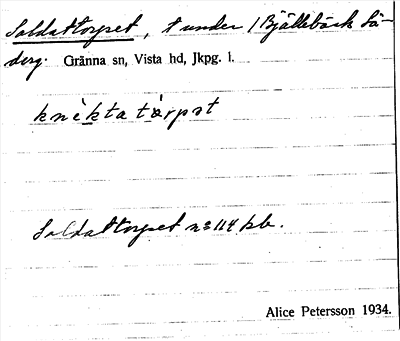 Soldattorpet, t under 1 Bjällebäck Sö-
derg. Gränna sn, Vista hd, Jkpg. l.
knèktatårpət
Soldattorpet no 114 kb.
Alice Petersson 1934.